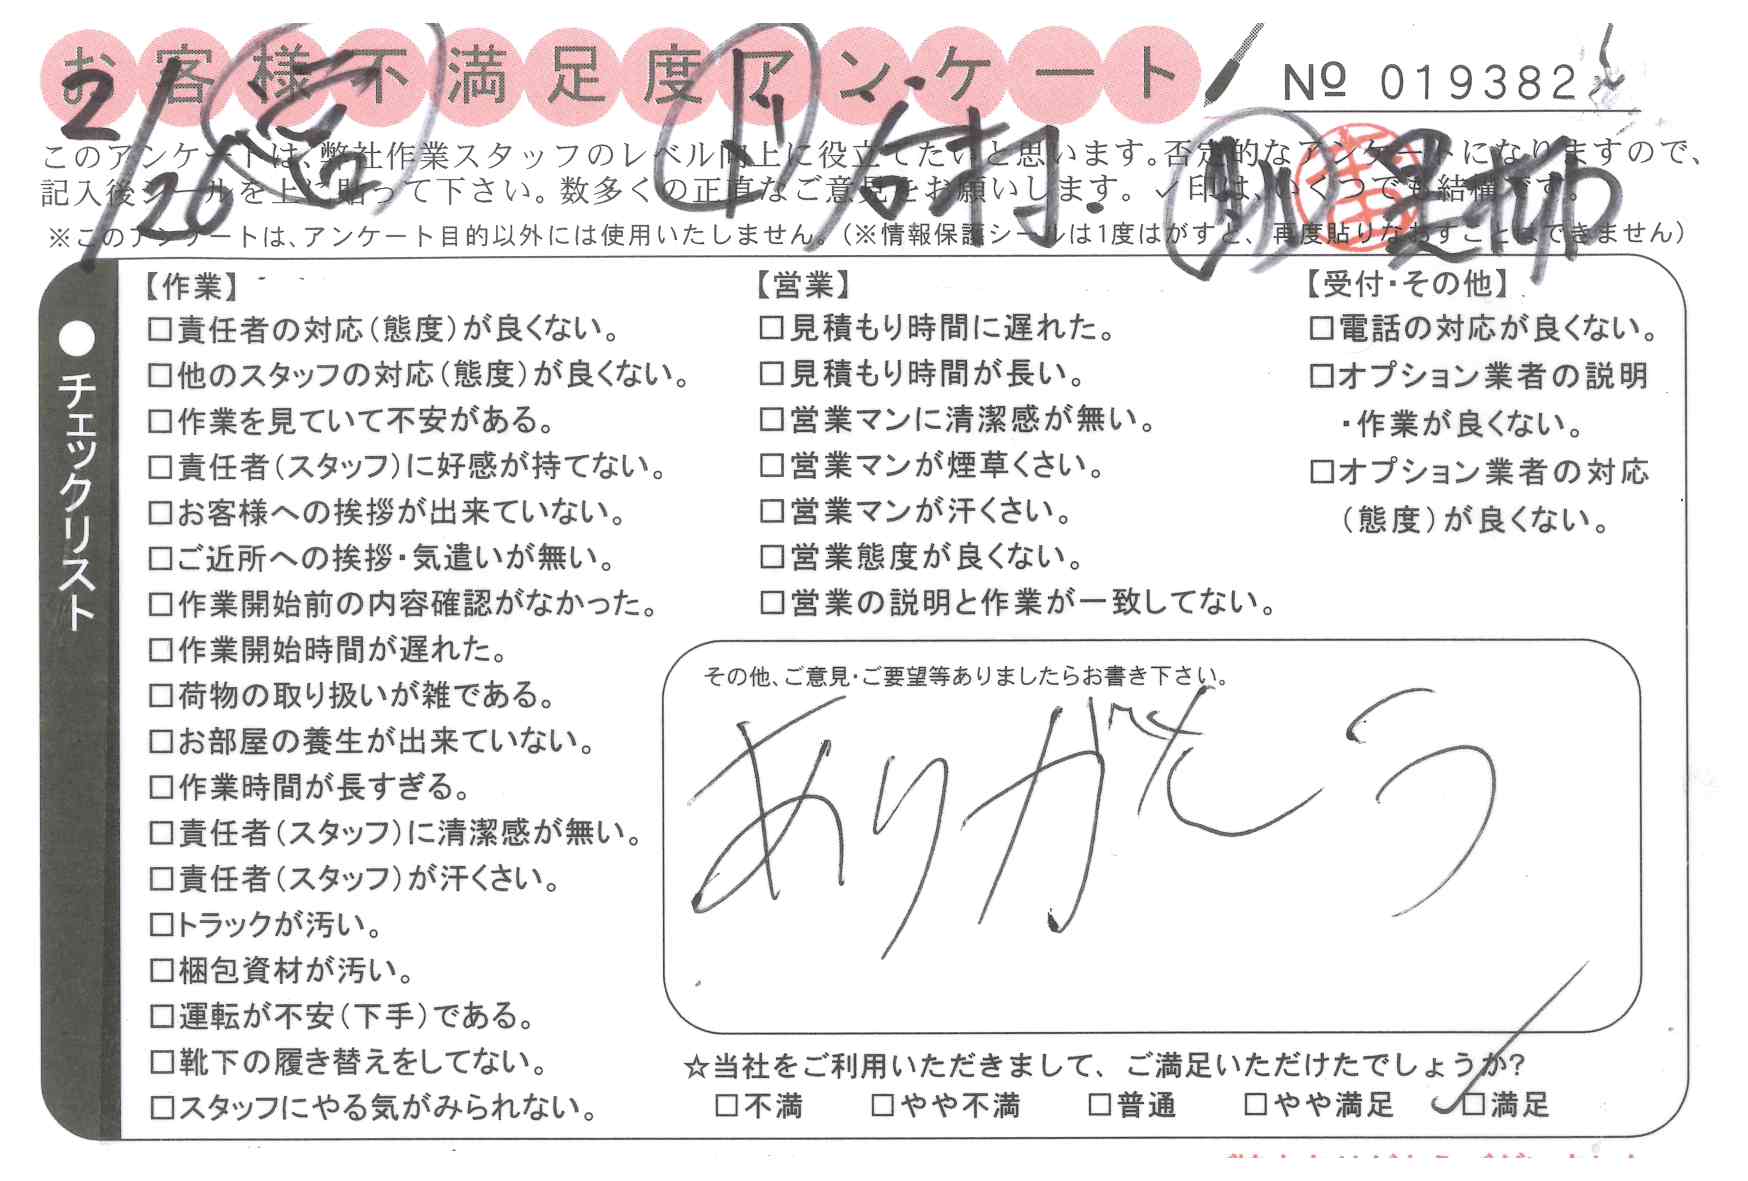 お客様不満足度アンケート
№ 019382
2/20 営 作 若村. 助 黒柳
このアンケートは、弊社作業スタッフのレベル向上に役立てたいと思います。否定的なアンケートになりますので、
記入後シールを上に貼って下さい。数多くの正直なご意見をお願いします。✓印は、いくつでも結構です。
※このアンケートは、アンケート目的以外には使用いたしません。(※情報保護シールは1度はがすと、再度貼りなおすことはできません)
●チェックリスト
【作業】
□責任者の対応(態度)が良くない。
□他のスタッフの対応(態度)が良くない。
□作業を見ていて不安がある。
□責任者(スタッフ)に好感が持てない。
□お客様への挨拶が出来ていない。
□ご近所への挨拶・気遣いが無い。
□作業開始前の内容確認がなかった。
□作業開始時間が遅れた。
□荷物の取り扱いが雑である。
□お部屋の養生が出来ていない。
□作業時間が長すぎる。
□責任者(スタッフ)に清潔感が無い。
□責任者(スタッフ)が汗くさい。
□トラックが汚い。
□梱包資材が汚い。
□運転が不安(下手)である。
□靴下の履き替えをしてない。
□スタッフにやる気がみられない。
【営業】
□見積もり時間に遅れた。
□見積もり時間が長い。
□営業マンに清潔感が無い。
□営業マンが煙草くさい。
□営業マンが汗くさい。
□営業態度が良くない。
□営業の説明と作業が一致してない。
【受付・その他】
□電話の対応が良くない。
□オプション業者の説明
・作業が良くない。
□オプション業者の対応
(態度)が良くない。
その他、ご意見・ご要望等ありましたらお書き下さい。
ありがとう
☆当社をご利用いただきまして、ご満足いただけたでしょうか?
□不満 □やや不満 □普通 □やや満足 ✓□満足